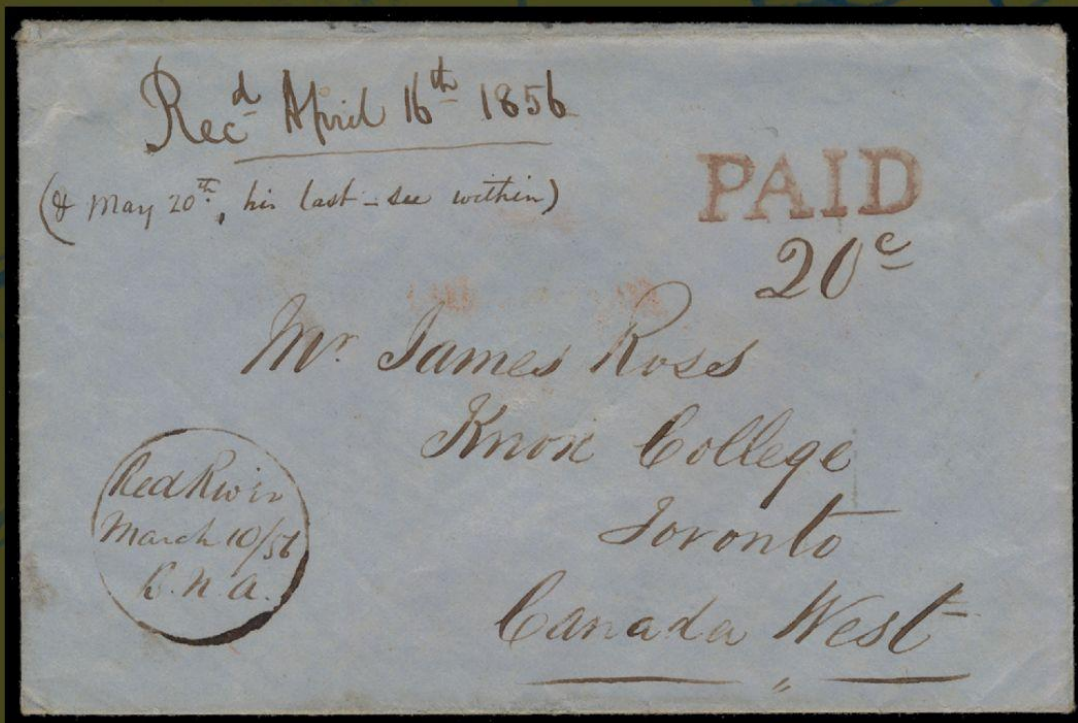 Recd April 16th 1856
(& May 20th, his last - see within)
PAID
20c
Mr. James Ross
Knox College
Toronto
Canada West
Red River
March 10/56
B.N.A.